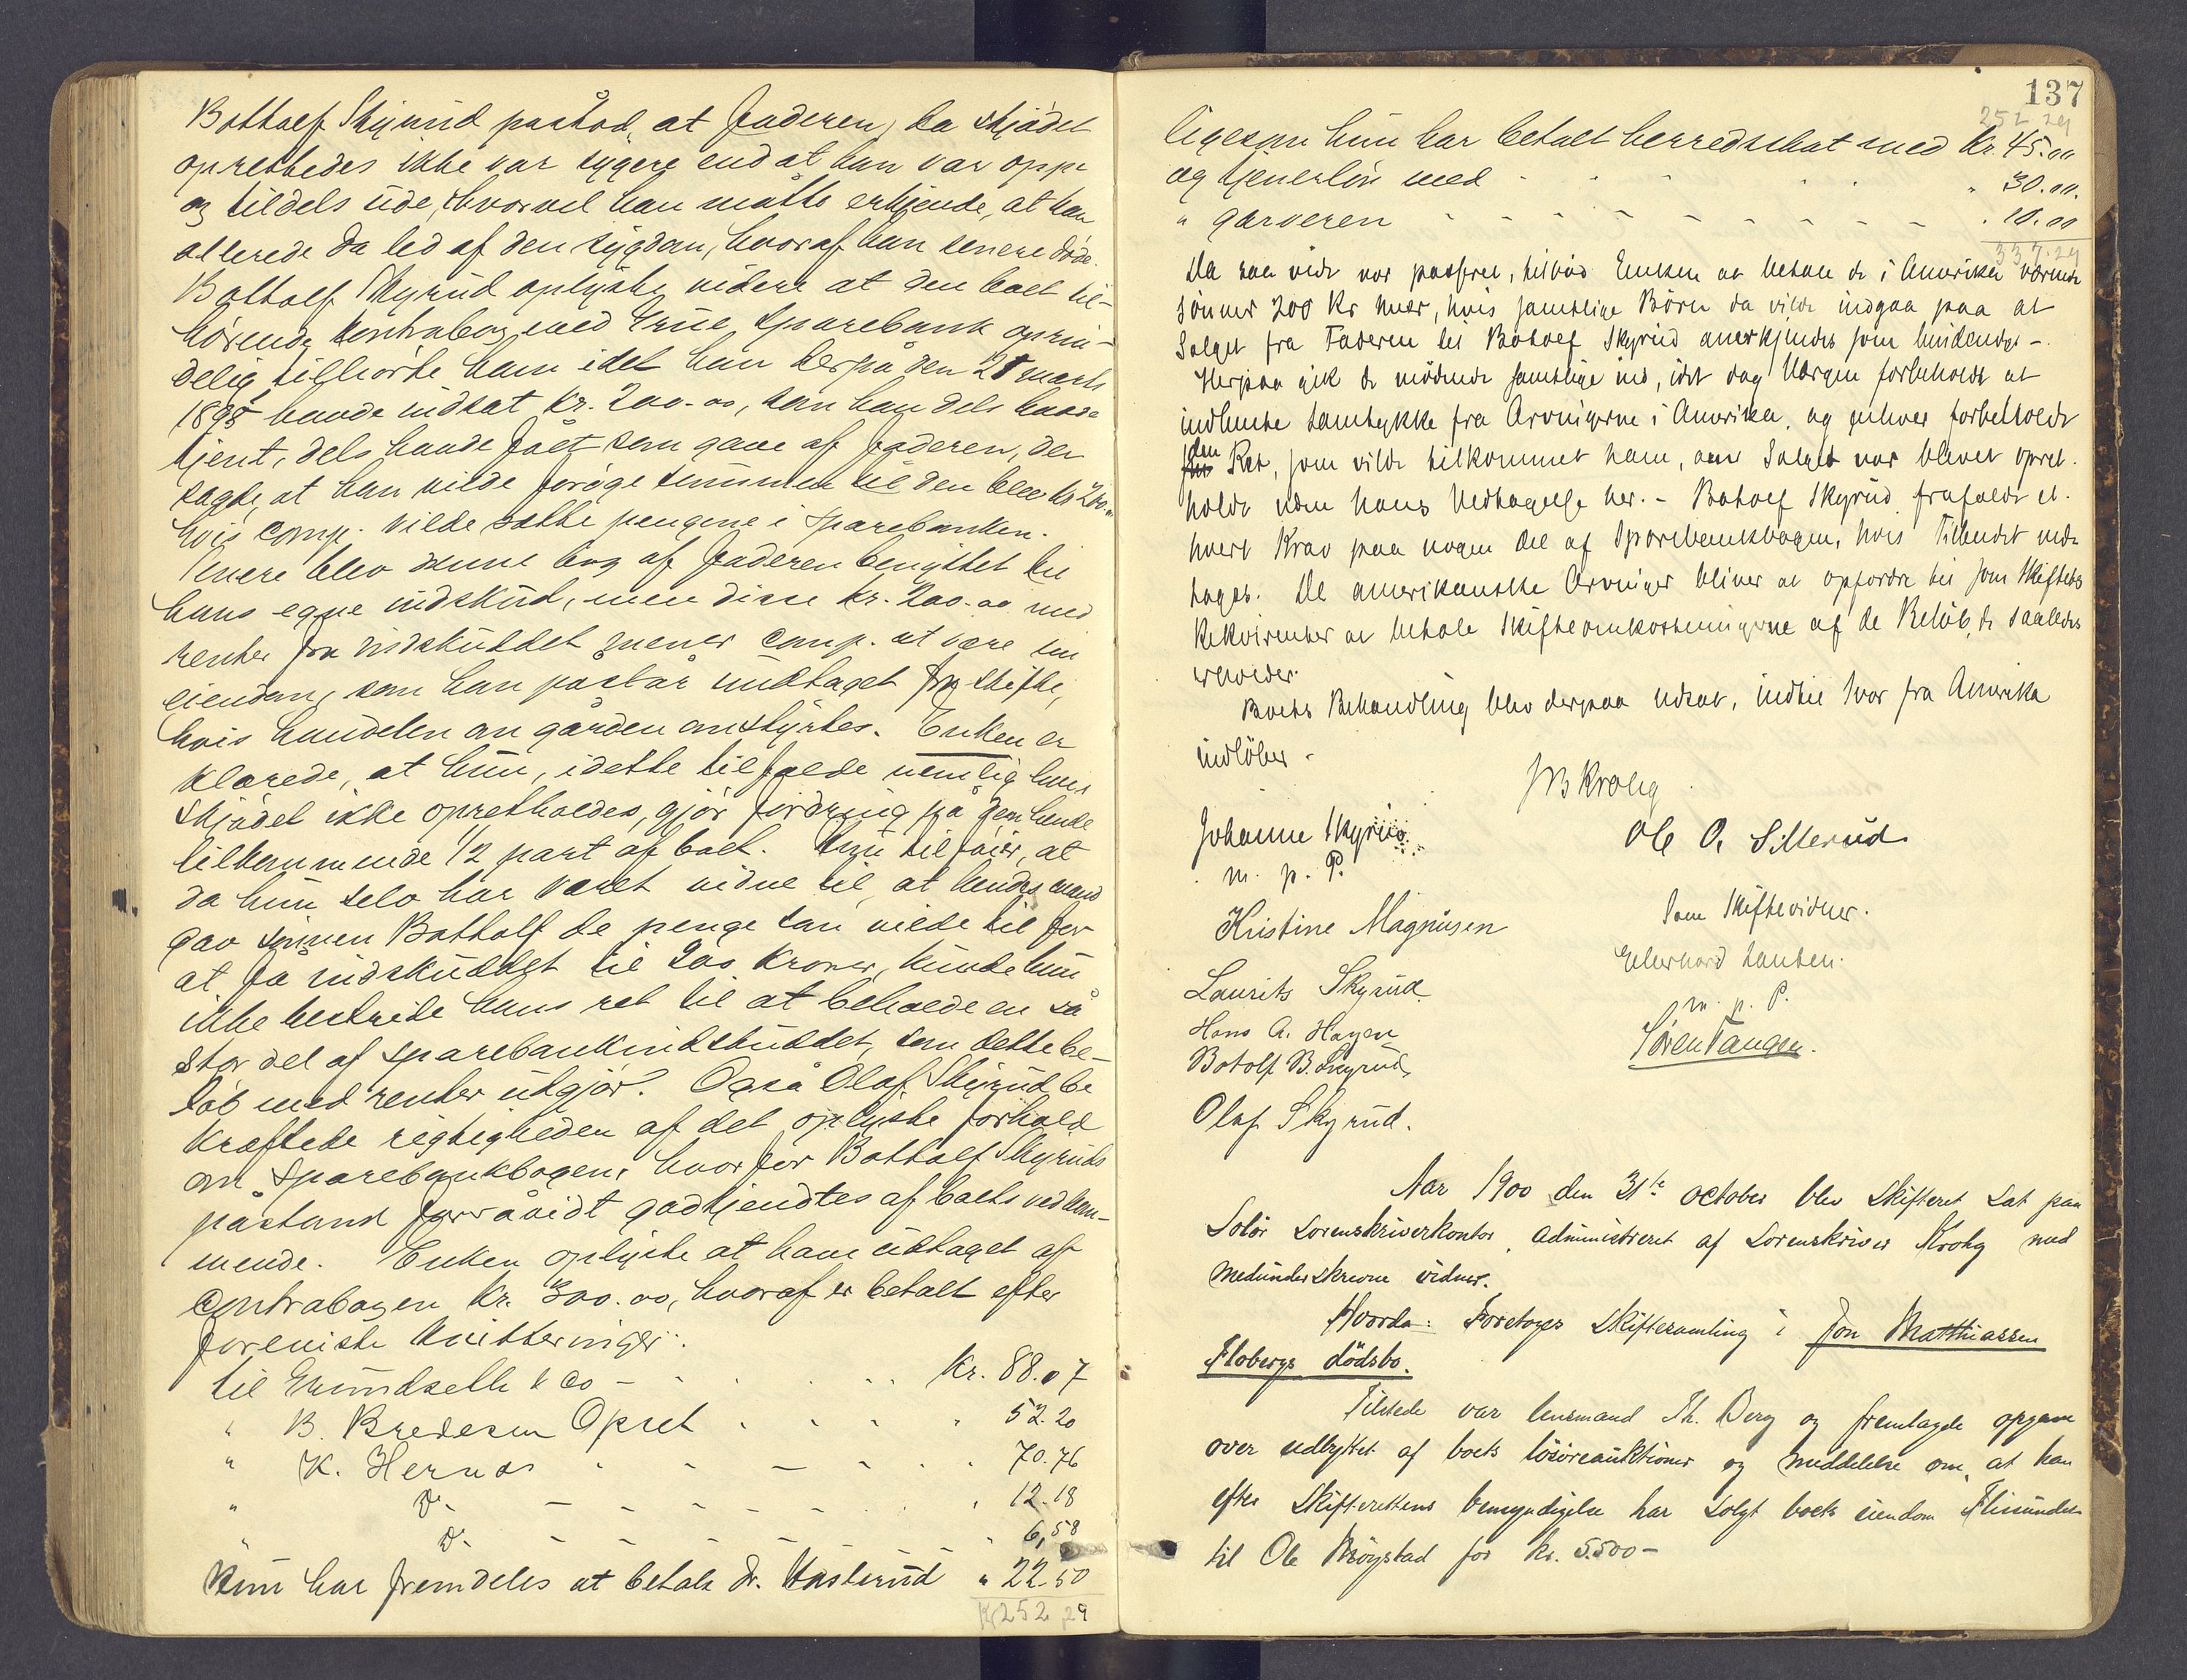 Botholf Skyrud påstod, at Faderen, da skjødet
oprettedes ikke var sygere end at han var oppe
og tildels ude, hvorvel han måtte erkjende, at han
allerede da led af den sygdom, hvoraf han senere døde.
Botholf Skyrud oplyste videre at den boet til-
hørende kontrabog med Grue Sparebank oprin-
delig tilhørte ham idet han derpå den 21 marts
1895 havde indsat Kr. 200.00, som han dels havde
tjent, dels havde fået som gave af Faderen, der
sagde, at han vilde forøge summen til den blev kr 200.00
hvis comp. vilde sætte pengene i Sparebanken.
Senere blev denne bog af Faderen benyttet til
hans egne indskud, men disse kr. 200.00 med
renter fra indskuddet mener comp. at være sin
eiendom, som han påstår undtaget fra skifte,
hvis handelen om gården omstyrtes. Enken er
klarede, at hun, i dette tilfælde nemlig hvis
skjødet ikke opretholdes, gjør fordring på den hende
tilkommende 1/2 part af boet. Hun tilføier, at
da hun selv har været vidne til, at hendes mand
gav sønnen Botholf de penge som vilde til for
at få indskuddet til 200 kroner, kunde hun
ikke bestride hans ret til at beholde en så
stor del af sparebankindskuddet, som dette be-
løb med renter udgjør. Også Olaf Skyrud be
kræftede rigtigheden af det oplyste forhold
om Sparebankbogen, hvorfor Botholf Skyruds
påstand forsåvidt godkjendtes af boets vedkom-
mende. Enken oplyste at have udtaget af
Contrabogen kr. 300.00, hvoraf er betalt efter
foreviste kvitteringer:
til Grundsetle & Co - Kr. 88.07
" B. Bredesen Opset " 52.20
" K. Hernes " 70.76
" Do " 12.18
" Do " 6,58
Hun har fremdeles at betale Dr. Hasterud " 22.50
Kr 252,29
137
252 29
ligesom hun har betalt herredsskat med Kr. 45.00
og tjenerløn med " 30.00.
" garveren " 10.00
337.29
Da saa vidt var passeret, tilbød Enken at betale de i Amerika værende
Sønner 200 Kr hver, hvis samtlige Børn da vilde indgaa paa at
Salget fra Faderen til Botolf Skyrud anerkjendes som bindende -
Herpaa gik de mødende samtlige ind, idet dog Værgen forbeholdt at
indhente Samtykke fra Arvingerne i Amerika, og enhver forbeholdt
den Ret, som vilde tilkommet ham, om Salget var blevet opret-
holdt uden hans Vedtagelse her. - Botolf Skyrud frafaldt et-
hvert Krav paa nogen Del af Sparebanksbogen, hvis Tilbudet ved-
tages. De amerikanske Arvinger bliver at opfordre til som Skiftets
Rekvirenter at betale Skifteomkostningerne af de Beløb, de saaledes
erholder.
Boets Behandling blev derpaa udsat, indtil Svar fra Amerika
indløber -
JB Krohg
Johanne Skyrud
m. p. P.
Ole O. Sillerud
Kristine Magnusen
Som Skiftevidner.
Laurits Skyrud
m. p. P.
Hans A. Hagen
Søren Tangen.
Botolf B. Skyrud,
Olaf Skyrud.
Aar 1900 den 31te october blev Skifteret sat paa
Solør Sorenskriverkontor, administreret af Sorenskriver Krohg med
medunderskrevne vidner.
Hvorda: Foretoges Skiftesamling i Jon Matthiassen
Flobergs dødsbo.
Tilstede var lensmand Th. Berg og fremlagde opgave
over udbyttet af boets løsøreauktioner og meddelelse om, at han
efter Skifterettens bemyndigelse har solgt boets eiendom
til Ole Brøgstad for kr. 5.500-